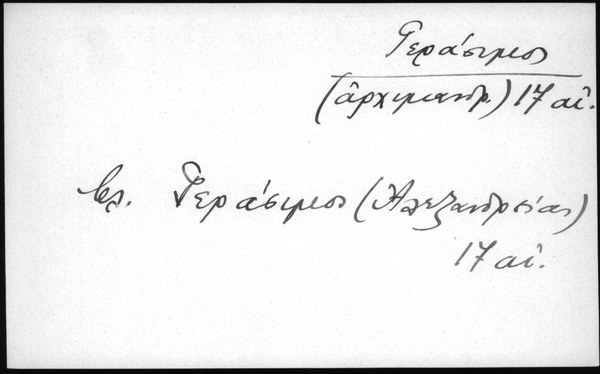 Γεράσιμος
(ἀρχιμανδρ.) 17 αἰ.
βλ. Γεράσιμος (Ἀλεξανδρείας)
17 αἰ.